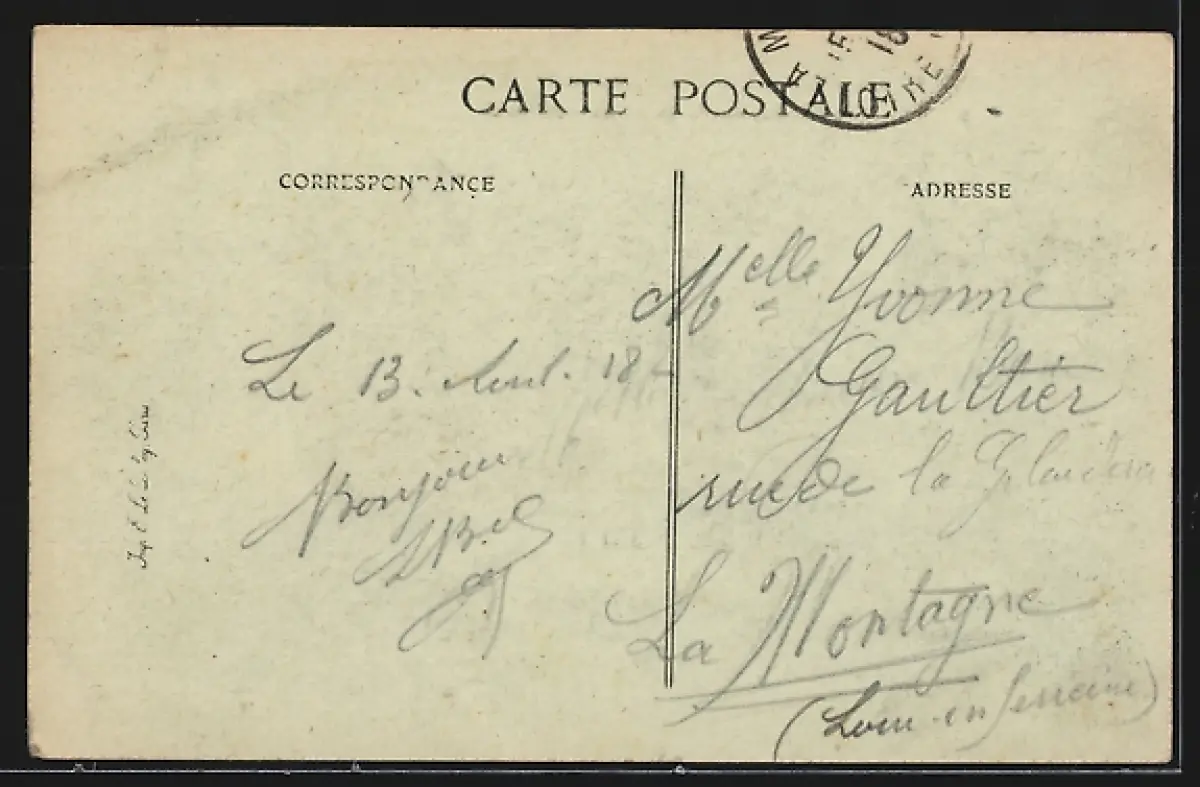 CARTE POSTALE
CORRESPONDANCE
ADRESSE
Le 13. Aout. 18
Bonjour
Melle Yvonne
Gaultier
rue de la
La Montagne
(Loire-inferieure)